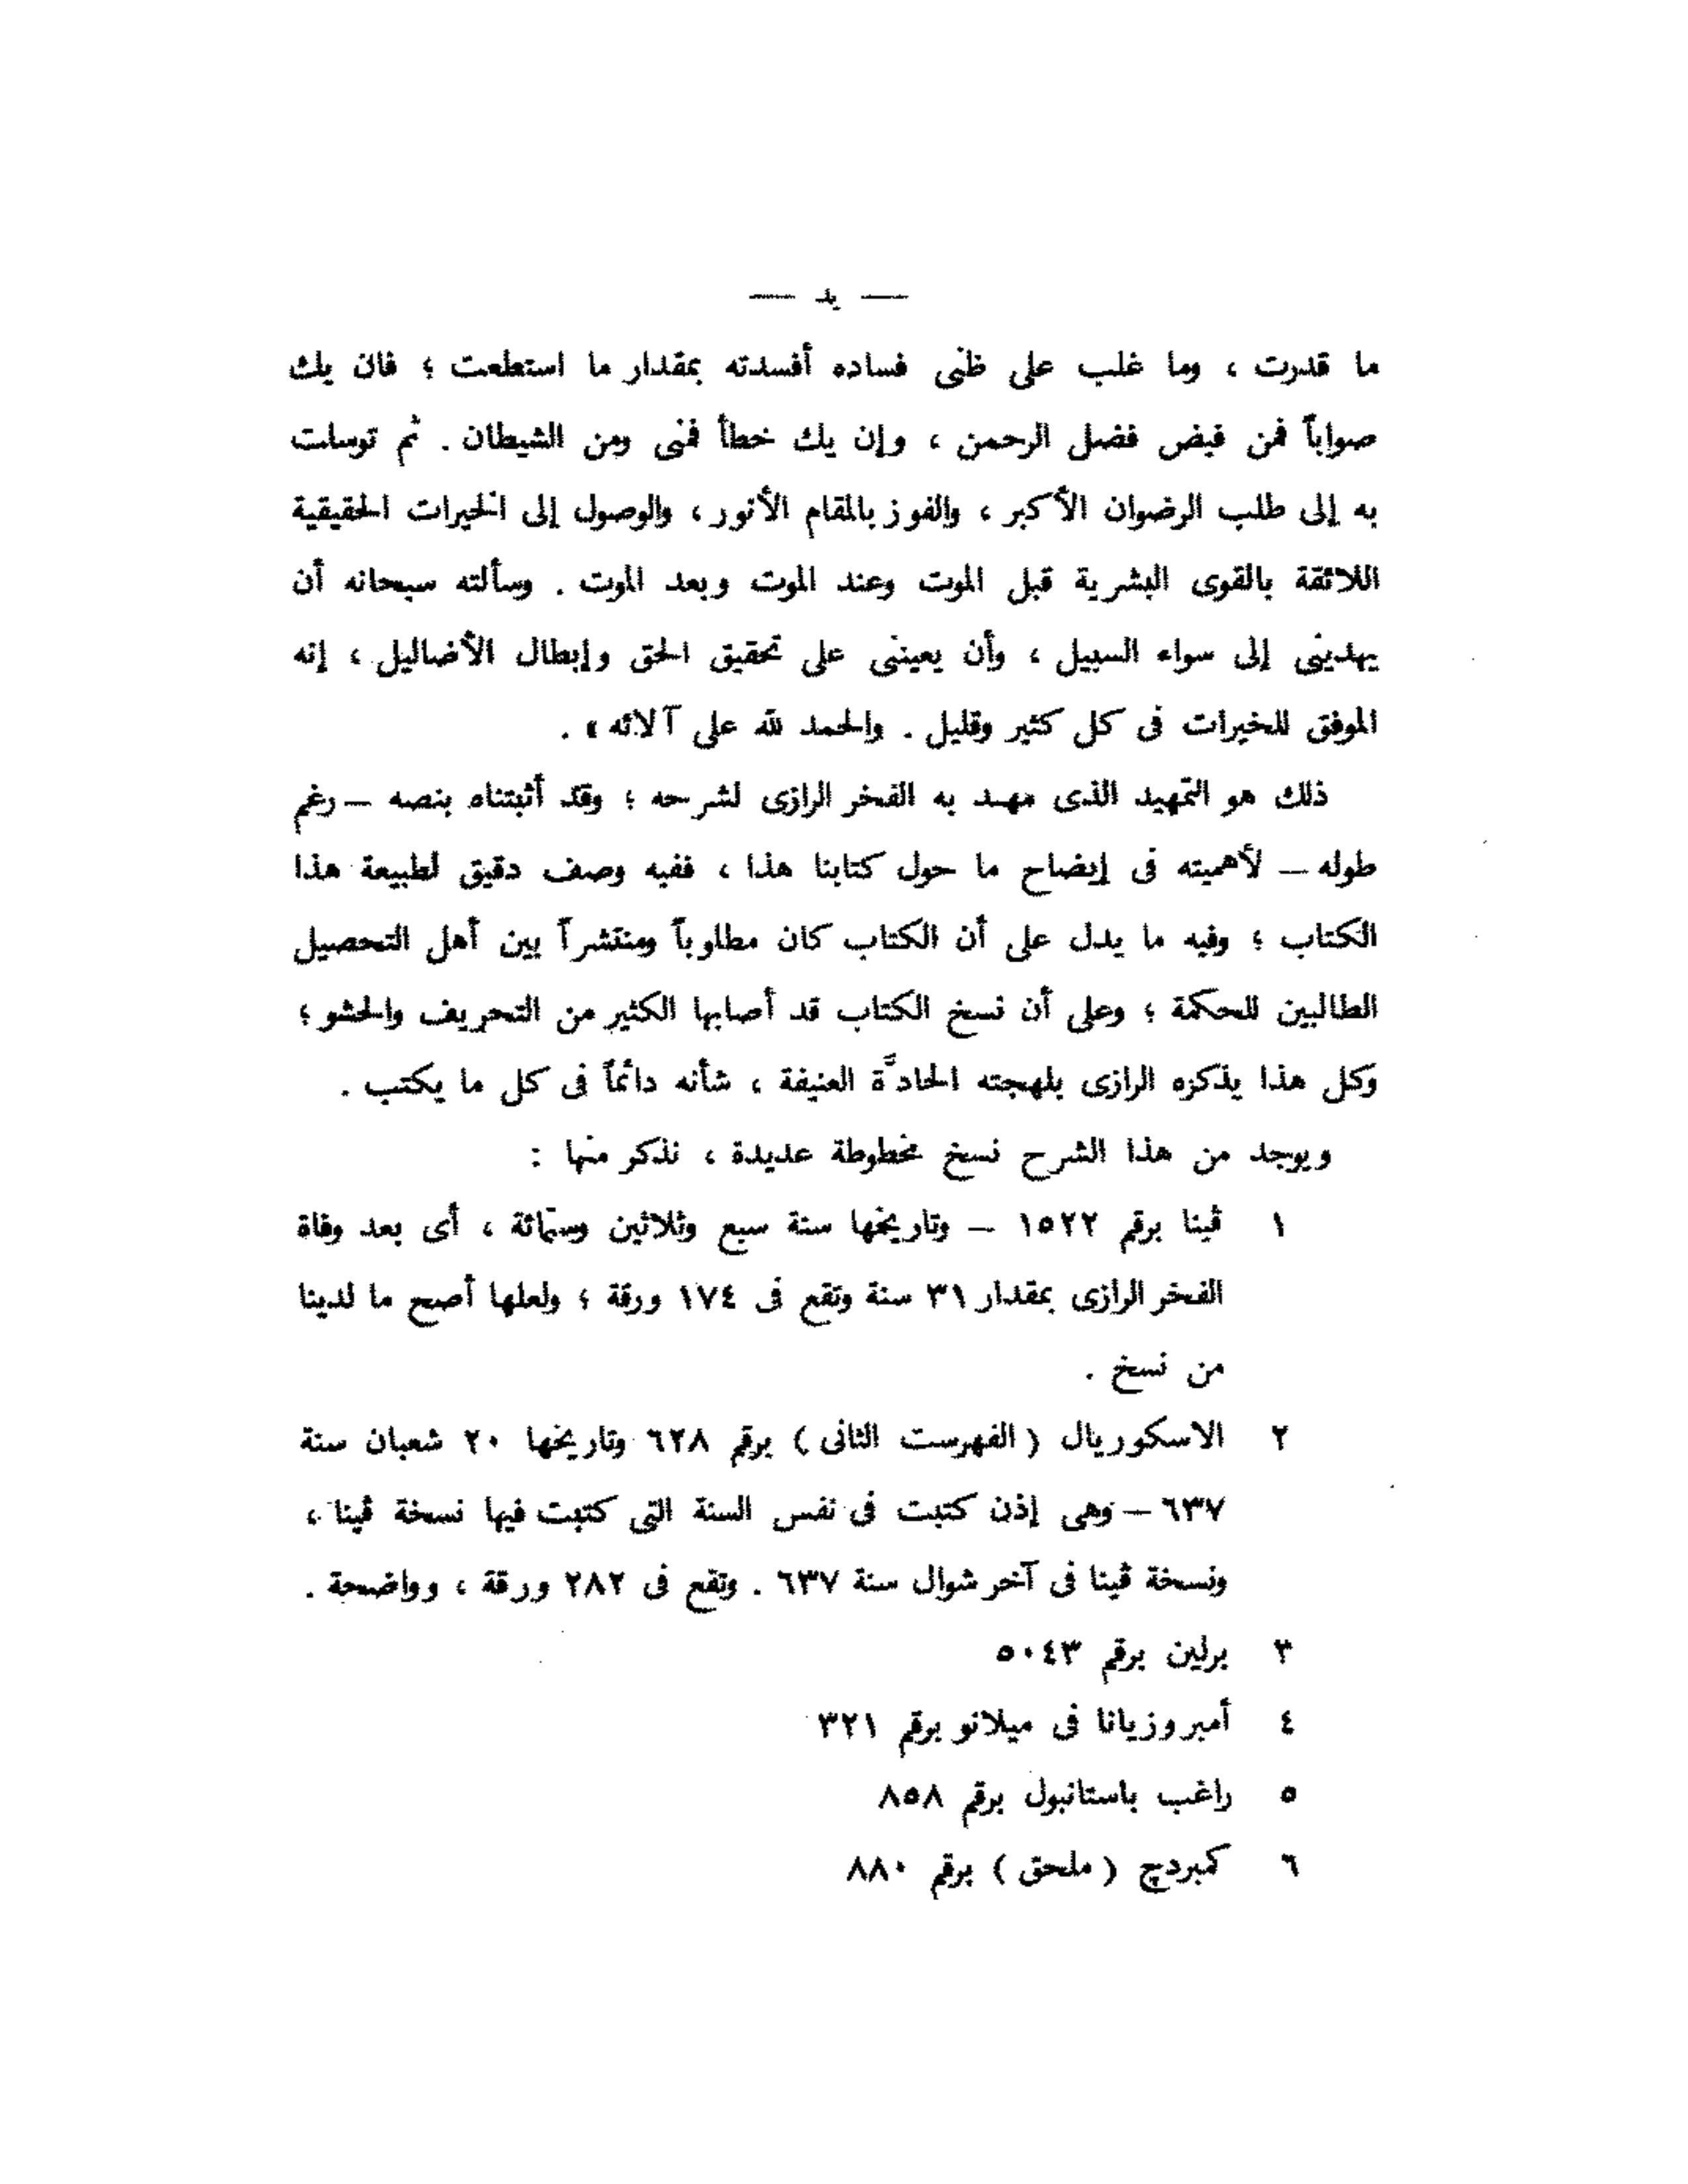 — يد —
ما قدرت ، وما غلب على ظنى فساده أفسدته بمقدار ما استطعت ؛ فان يك
صواباً فمن فيض فضل الرحمن ، وإن يك خطأ فمنى ومن الشيطان . ثم توسلت
به إلى طلب الرضوان الأكبر ، والفوز بالمقام الأنور ، والوصول إلى الخيرات الحقيقية
اللائقة بالقوى البشرية قبل الموت وعند الموت وبعد الموت . وسألته سبحانه أن
يهدينى إلى سواء السبيل ، وأن يعيننى على تحقيق الحق وإبطال الأضاليل ، إنه
الموفق للخيرات فى كل كثير وقليل . والحمد لله على آلائه » .
ذلك هو التمهيد الذى مهد به الفخر الرازى لشرحه ؛ وقد أثبتناه بنصه — رغم
طوله — لأهميته فى إيضاح ما حول كتابنا هذا ، ففيه وصف دقيق لطبيعة هذا
الكتاب ؛ وفيه ما يدل على أن الكتاب كان مطلوباً ومنتشراً بين أهل التحصيل
الطالبين للحكمة ؛ وعلى أن نسخ الكتاب قد أصابها الكثير من التحريف والحشو ؛
وكل هذا يذكره الرازى بلهجته الحادَّة العنيفة ، شأنه دائماً فى كل ما يكتب .
ويوجد من هذا الشرح نسخ مخطوطة عديدة ، نذكر منها :
١ ڤينا برقم ١٥٢٢ — وتاريخها سنة سبع وثلاثين وستمائة ، أى بعد وفاة
الفخر الرازى بمقدار ٣١ سنة وتقع فى ١٧٤ ورقة ؛ ولعلها أصح ما لدينا
من نسخ .
٢ الاسكوريال ( الفهرست الثانى ) برقم ٦٢٨ وتاريخها ٢٠ شعبان سنة
٦٣٧ — وهى إذن كتبت فى نفس السنة التى كتبت فيها نسخة ڤينا ،
ونسخة ڤينا فى آخر شوال سنة ٦٣٧ . وتقع فى ٢٨٢ ورقة ، وواضحة .
٣ برلين برقم ٥٠٤٣
٤ أمبروزيانا فى ميلانو برقم ٣٢١
٥ راغب باستانبول برقم ٨٥٨
٦ كمبردچ ( ملحق ) برقم ٨٨٠